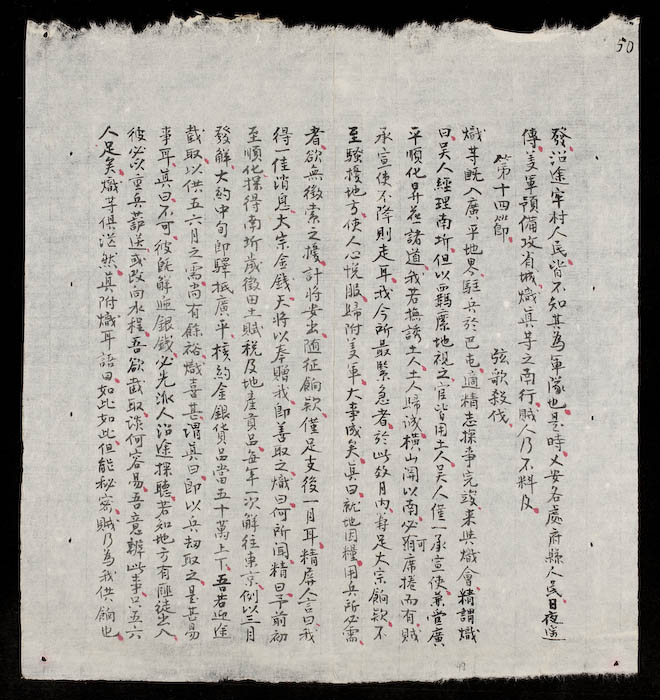 50
發沿途牢村人民皆不知其為軍隊也是時乂安各處府縣人民日夜喧
傳美軍預備攻省城熾真等之南行賊人乃不料及
第十四節 弦歌殺伐
熾等既入廣平地界駐兵於巴屯適精志探事完竣来與熾會精謂熾
曰吳人經理南圻但以羈縻地視之官皆用土人吳人僅一承宣使兼管廣
平順化昇華諸道我若撫誘土人土人歸誠橫山関以南必可翦席捲而有賊
承宣使不降則走耳我今所最緊急者於此數月內壽足大宗餉欵不
至騷擾地方使人心悅服歸附美軍大事成矣真曰就地因糧用兵所必需
者欲無徵索之擾計將安出隨征餉欵僅足支後一月耳精屏人言曰我
得一佳消息大宗金錢天將以奉贈我卽善取之熾曰何所聞精曰予前初
至順化探得南圻歲徵田土賦税及地產貢品每年一次解往東京例以三月
發解大約中旬卽驛抵廣平核約金銀貨品當五十萬上下吾若迎途
截取以供五六月之需尚有餘裕熾喜甚謂真曰卽以兵刼取之是甚易
事耳真曰不可彼既解逓銀錢必先派人沿途探聽若知地方有匪徒出入
彼必以重兵葫送或改向水程吾欲截取談何容易吾意辦此事只五六
人足矣熾等俱泣然真附熾耳語曰如此如此但能秘密賊乃為我供餉也